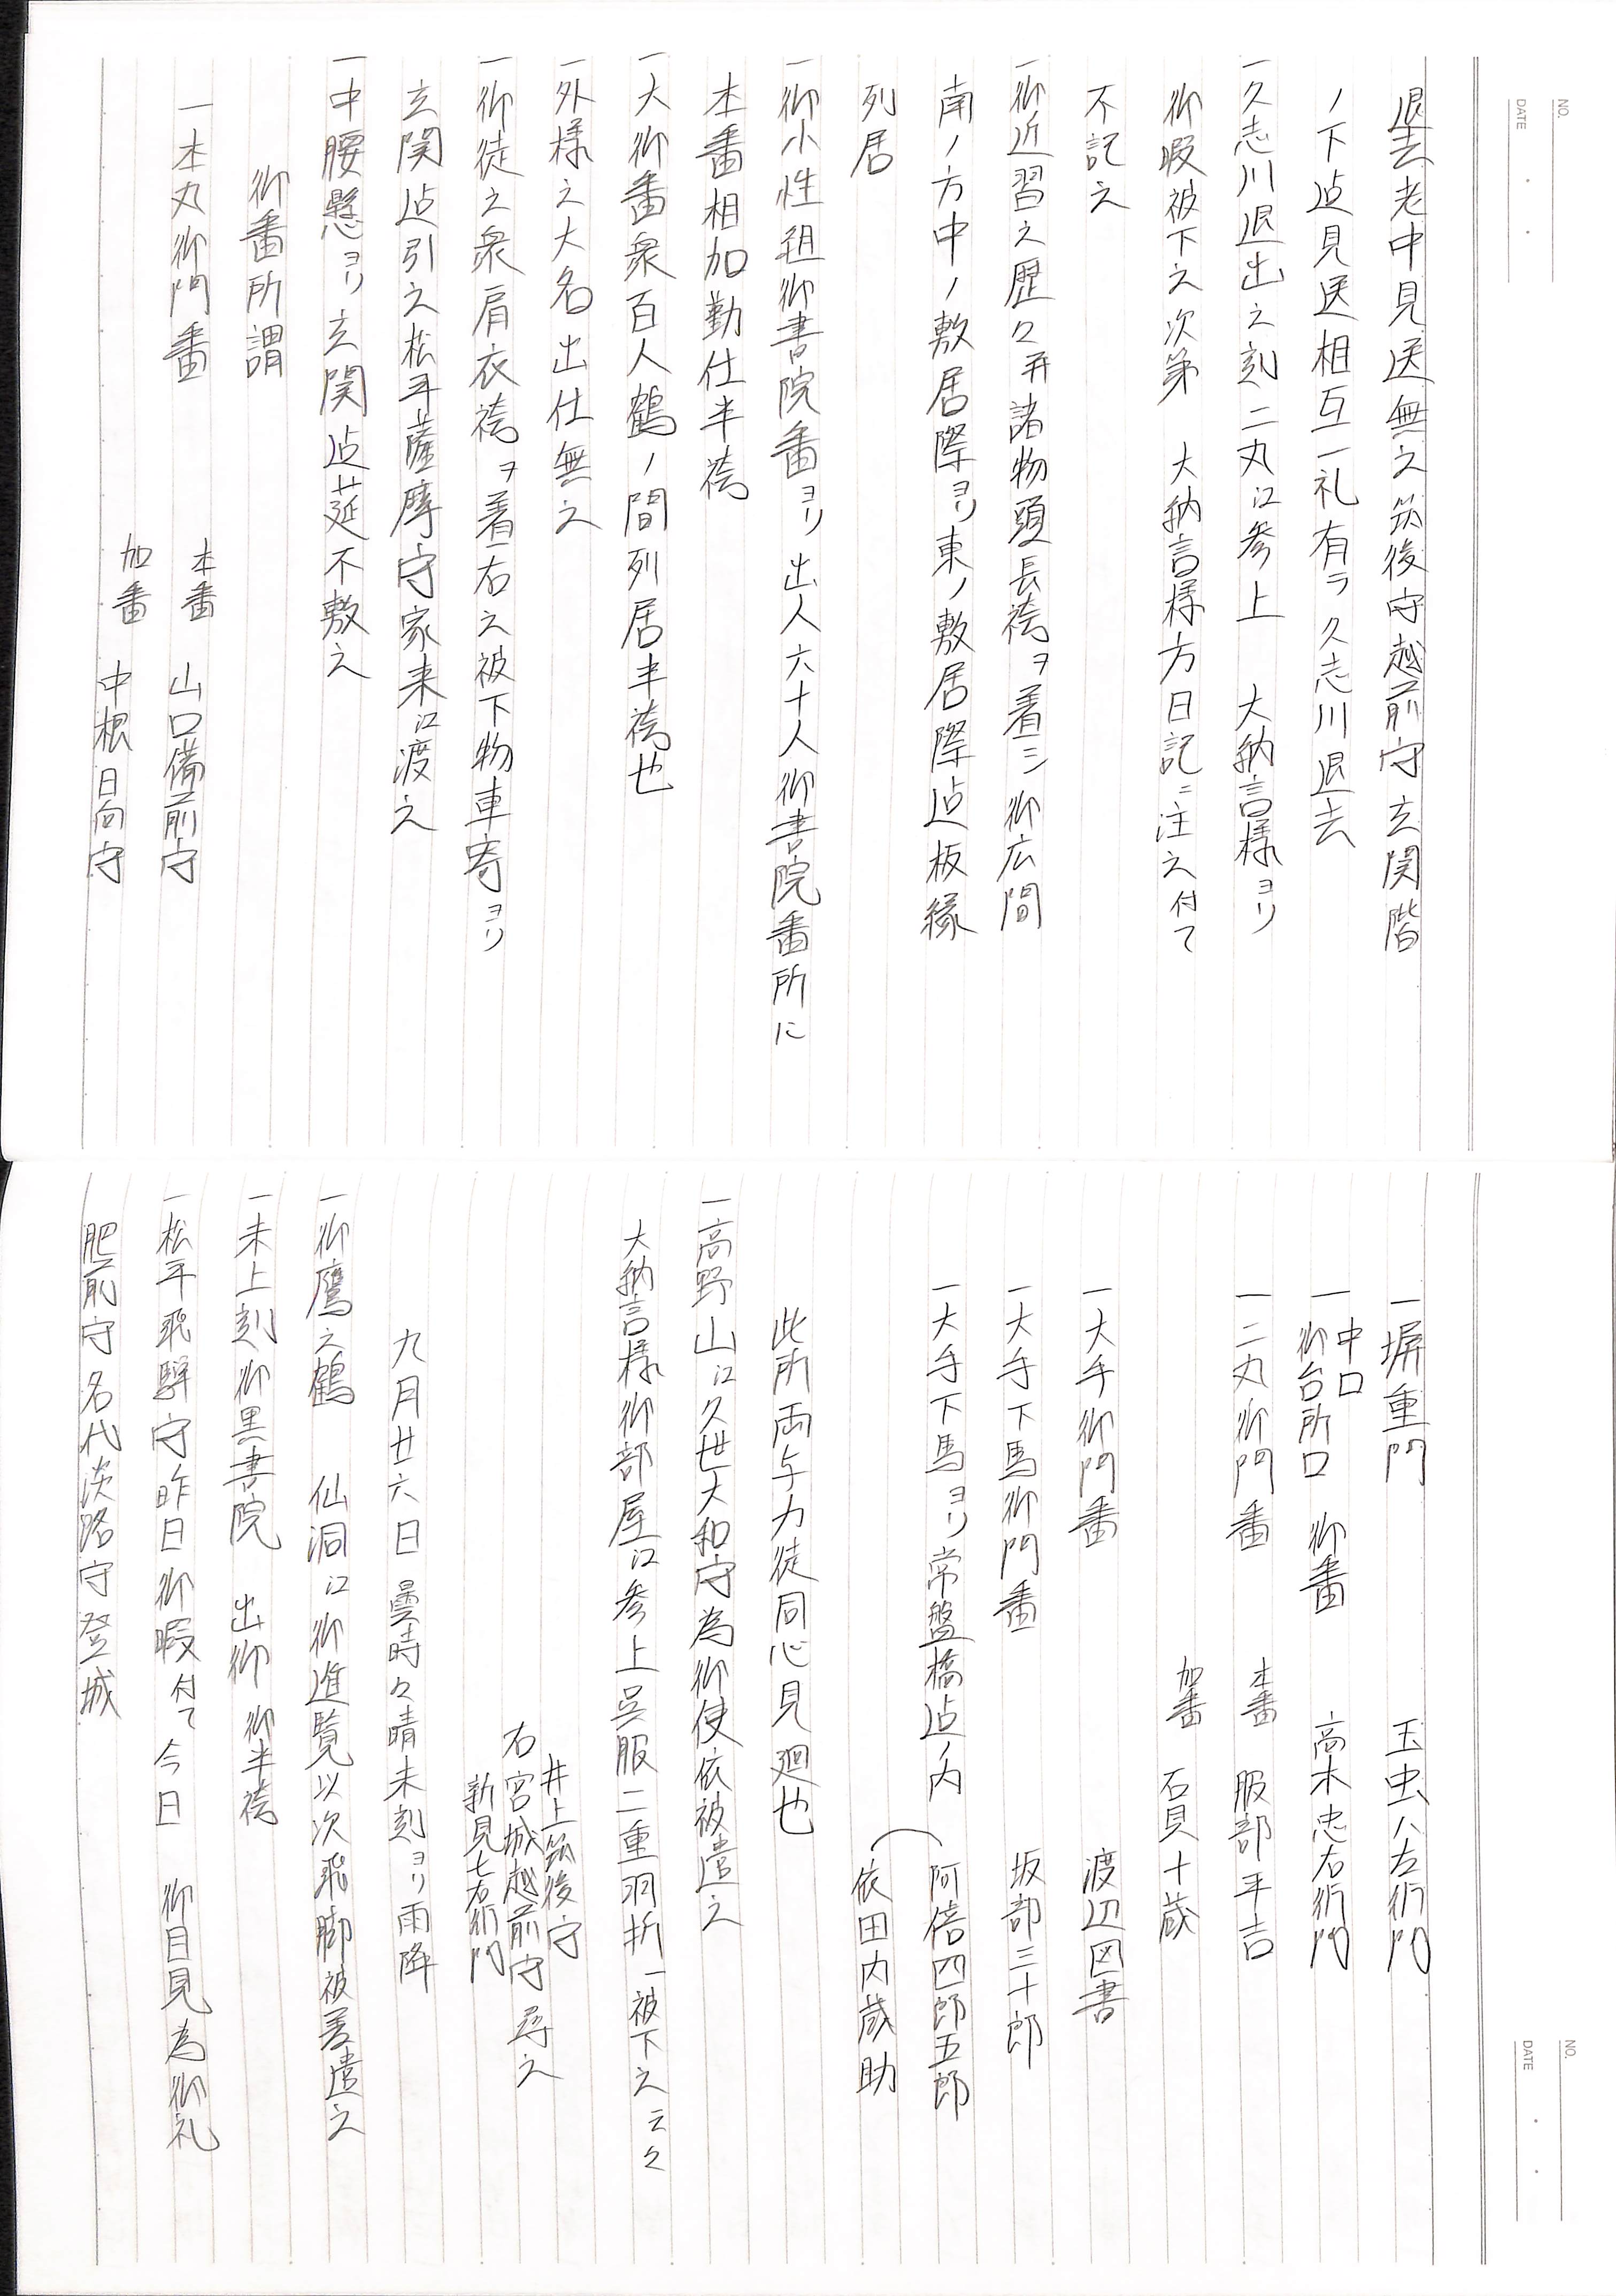 退去老中見送無之筑後守越前守玄関階
ノ下迠見送相互一礼有ラ久志川退去
一久志川退出之刻二丸江参上 大納言様ヨリ
御暇被下之次第 大納言様方日記ニ注之付て
不記之
一御近習之歴々并諸物頭長袴ヲ着シ御広間
南ノ方中ノ敷居際ヨリ東ノ敷居際迠板縁
列居
一御小性組御書院番ヨリ出人六十人御書院番所に
本番相加勤仕半袴
一大御番衆百人鶴ノ間列居半袴也
一外様之大名出仕無之
一御徒之衆肩衣袴ヲ着右之被下物車寄ヨリ
玄関迠引之松平薩摩守家来江渡之
一中腰懸ヨリ玄関迠莚不敷之
御番所謂
一本丸御門番 本番 山口備前守
加番 中根日向守
一塀重門 玉虫八左衛門
一中口 御台所口 御番 高木忠右衛門
一二丸御門番 本番 服部平吉
加番 石貝十蔵
一大手御門番 渡辺図書
一大手下馬御門番 坂部三十郎
一大手下馬ヨリ常盤橋迠ノ内 阿倍四郎五郎
依田内蔵助
此所両与力徒同心見廻也
一高野山江久世大和守為御使依被遣之
大納言様御部屋江参上呉服二重羽折一被下之云々
井上筑後守
右宮城越前守尋之
新見七右衛門
九月廿六日曇時々晴未刻ヨリ雨降
一御鷹之鶴 仙洞江御進覧以次飛脚被差遣之
一未上刻御黒書院 出御 御半袴
一松平飛騨守昨日御暇付て今日 御目見為御礼
肥前守名代淡路守登城
NO.
DATE
NO.
DATE